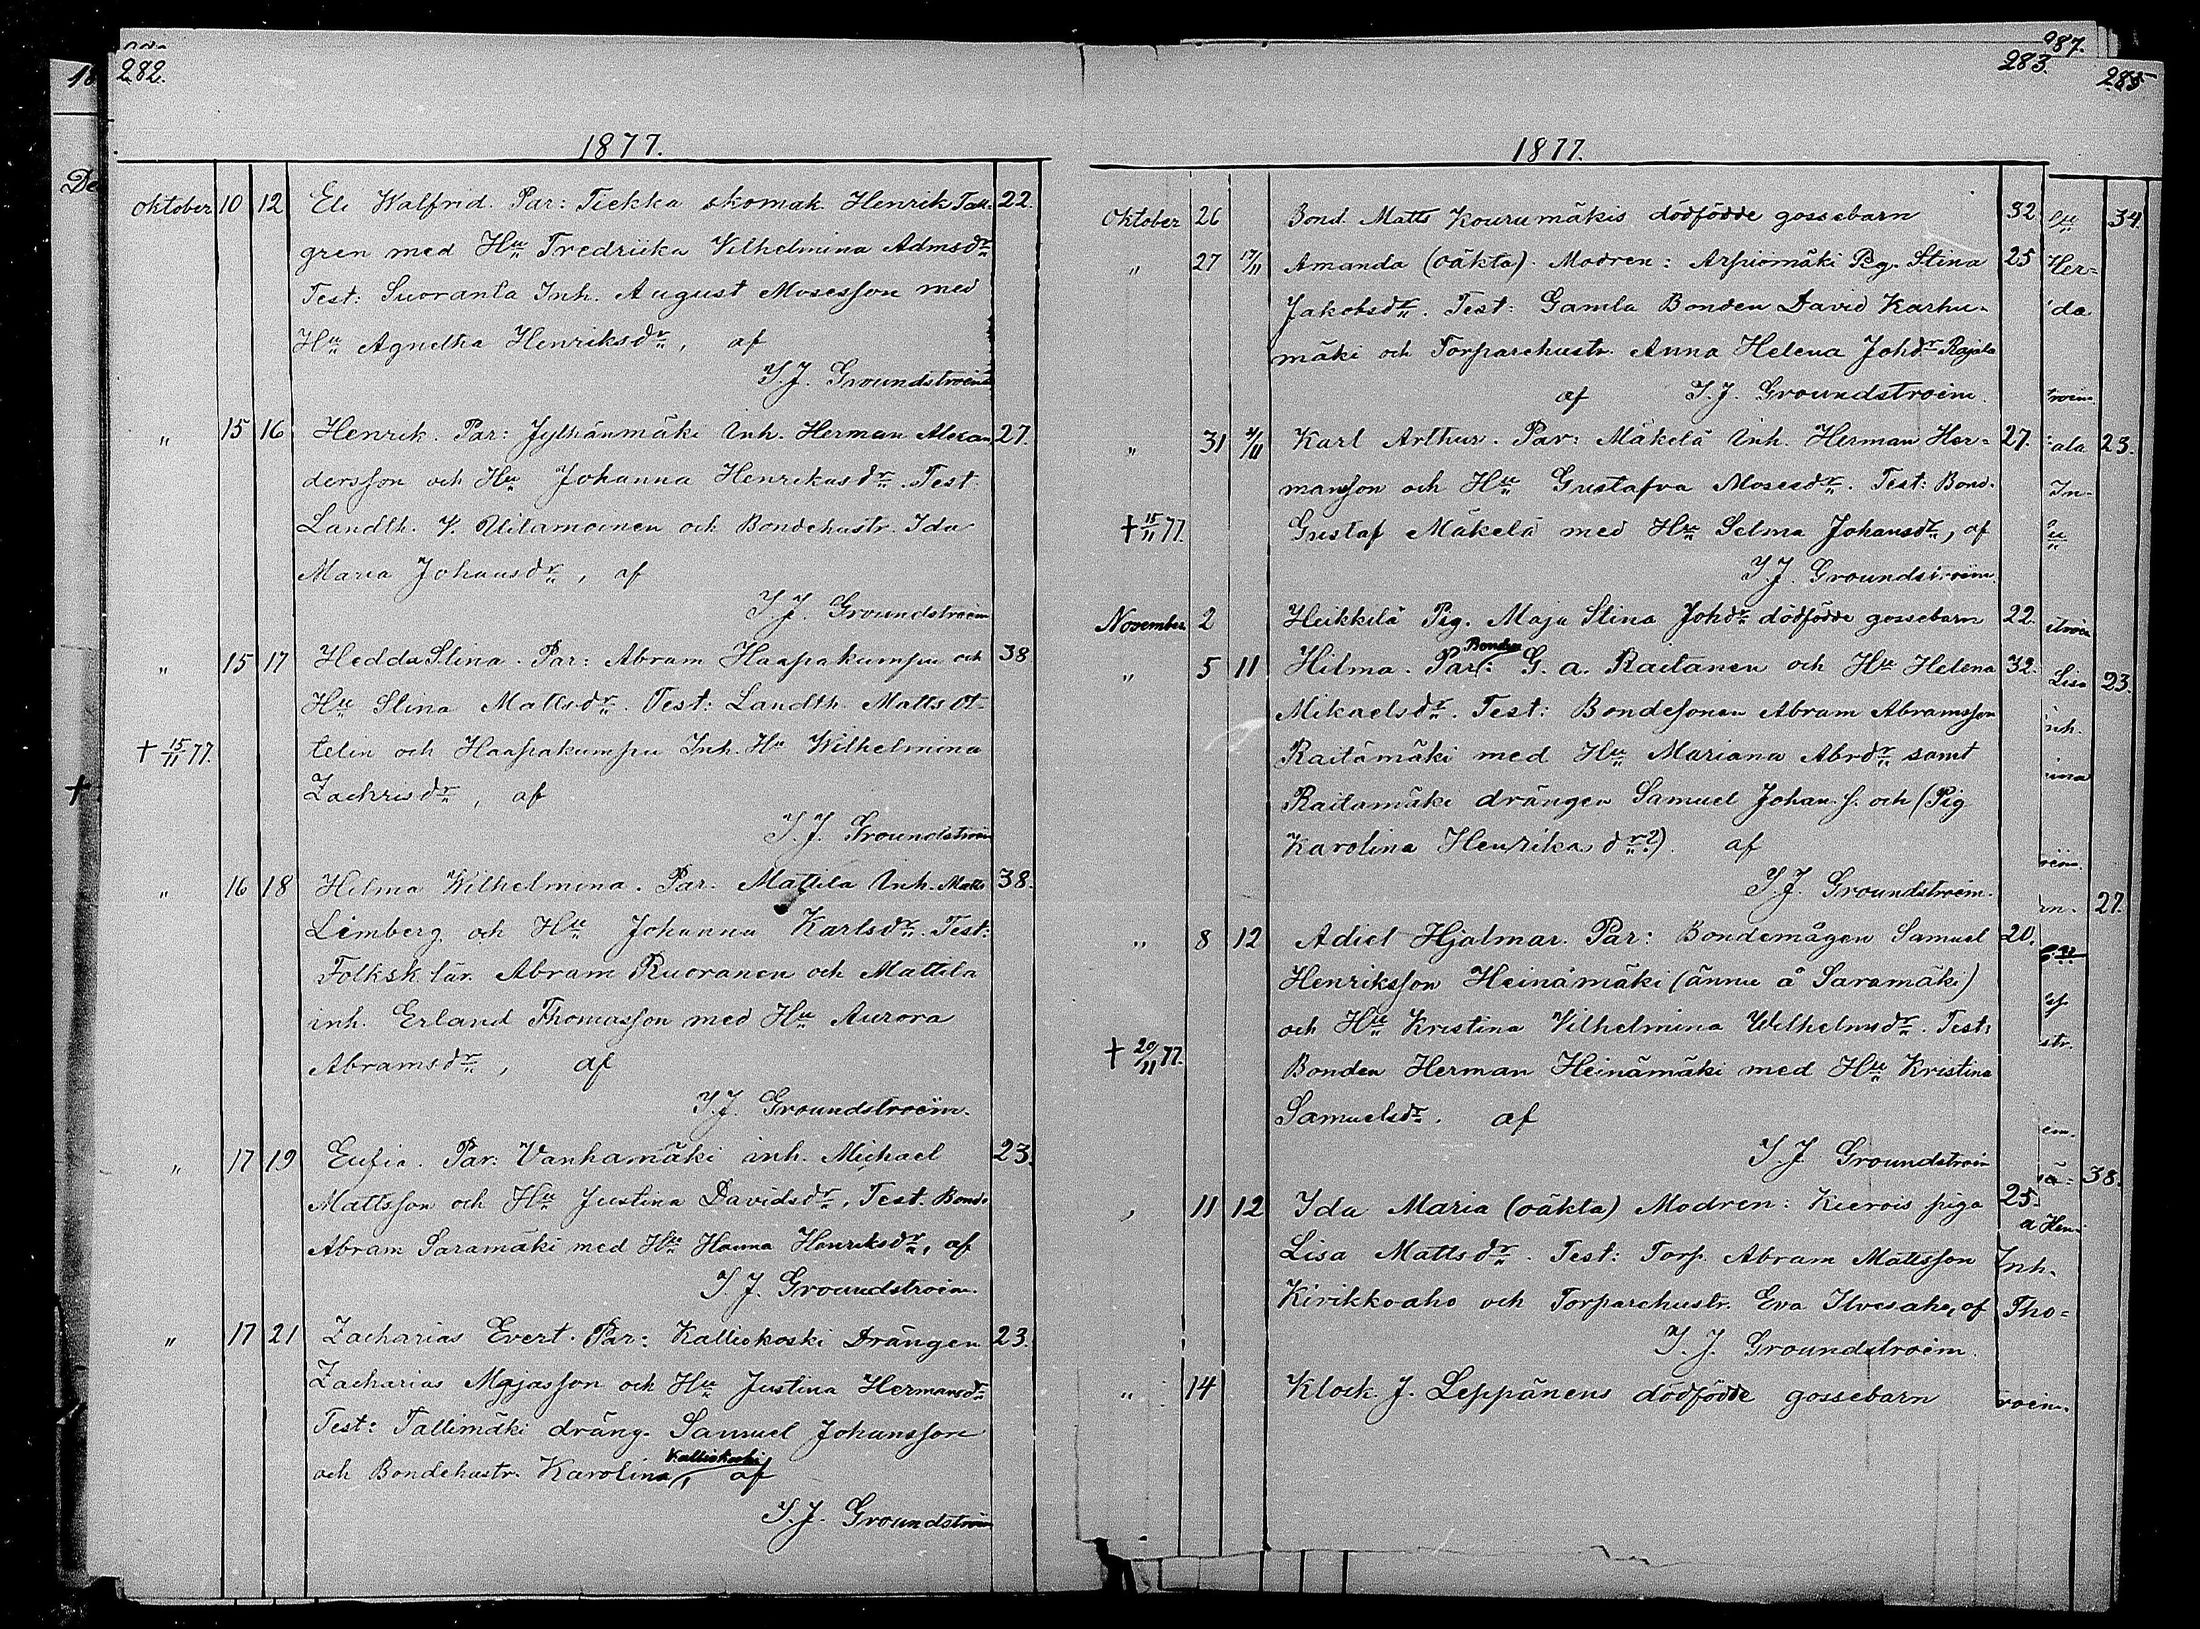 282.
1877.
Oktober 10 12 Eli Walfrid. Par: Tiekka skomak. Henrik Tall- 22.
gren med Hu Fredrika Vilhelmina Admsdr
Test: Suoranta Inh. August Mosesson med
Hu Agnetha Henriksdr, af
I.J. Groundstroem
" 15 16 Henrik. Par: Jylhänmäki Inh. Herman Alexan- 27.
dersson och Hu Johanna Henriksdr. Test.
Landth. V. Uitamoinen och Bondehustr. Ida
Maria Johansdr, af
I.J. Groundstroem
" 15 17 Hedda Stina. Par: Abram Haapakumpu och 38
Hu Stina Mattsdr. Test: Landth. Matts Ot-
+ 15/11 77. telin och Haapakumpu Inh. Hu Wilhelmina
Zachrisdr, af
I.J. Groundstroem
" 16 18 Hilma Wilhelmina. Par. Mattila Inh. Matts 38.
Limberg och Hu Johanna Karlsdr. Test:
Folksk. lär. Abram Ruoranen och Mattila
inh. Erland Thomasson med Hu Aurora
Abramsdr, af
I.J. Groundstroem.
" 17 19 Eufia. Par: Vanhamäki inh. Michael 23.
Mattsson och Hu Justina Davidsdr. Test. Bond.
Abram Saramäki med Hu Hanna Henriksdr, af
I.J. Groundstroem.
" 17 21 Zacharias Evert. Par: Kalliokoski Drängen 23.
Zacharias Majasson och Hu Justina Hermansdr
Test: Tallimäki dräng. Samuel Johansson
och Bondehustr. Karolina Kalliokoski, af
I.J. Groundstroem
287.
283.
285
1877.
Oktober 26 Bond. Matts Kourumäkis dödfödde gossebarn 32
" 27 17/11 Amanda (oäkta). Modren: Arpiomäki Pig. Stina 25
Jakobsdr. Test: Gamla Bonden David Karhu-
mäki och Torparehustr. Anna Helena Johdr Rajala
af I.J. Groundstroem.
" 31 4/11 Karl Arthur. Par: Mäkelä Inh. Herman Her- 27.
mansson och Hu Gustafva Mosesdr. Test: Bond.
+ 15/11 77. Gustaf Mäkelä med Hu Selma Johansdr, af
I.J. Groundstroem.
November 2 Heikkilä Pig. Maja Stina Johdr dödfödde gossebarn 22.
" 5 11 Hilma. Par: Bonden G. A. Raitanen och Hu Helena 32.
Mikaelsdr. Test: Bondesonen Abram Abramsson
Raitämäki med Hu Mariana Abrdr samt
Raitamäki drängen Samuel Johan. s. och (Pig
Karolina Henriksdr?) af
I.J. Groundstroem.
" 8 12 Adiel Hjalmar. Par: Bondemågen Samuel 20.
Henriksson Heinämäki (ännu å Saramäki)
och Hu Kristina Vilhelmina Wilhelmsdr. Test:
+ 20/11 77. Bonden Herman Heinämäki med Hu Kristina
Samuelsdr. af
I.J. Groundstroem
" 11 12 Ida Maria (oäkta) Modren: Kierois piga 25.
Lisa Mattsdr. Test: Torp. Abram Mattsson
Kirikkoaho och Torparehustr. Eva Ilvesaho, af
I.J. Groundstroem.
" 14 Klock. J. Leppänens dödfödde gossebarn
34.
Her-
da
troem.
ala 23.
In-
stroem
Lisa 23.
inh.
mina
roem.
27.
str.
em.
38.
a Hen-
Inh.
Tho-
roem.